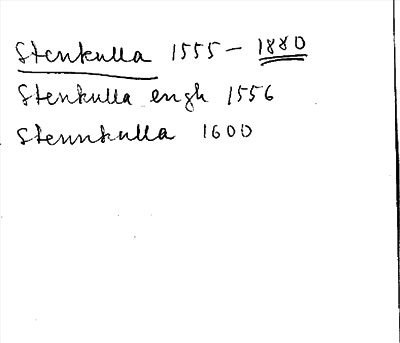 Stenkulla 1555 – 1880
Stenkulla engh 1556
Stennkulla 1600